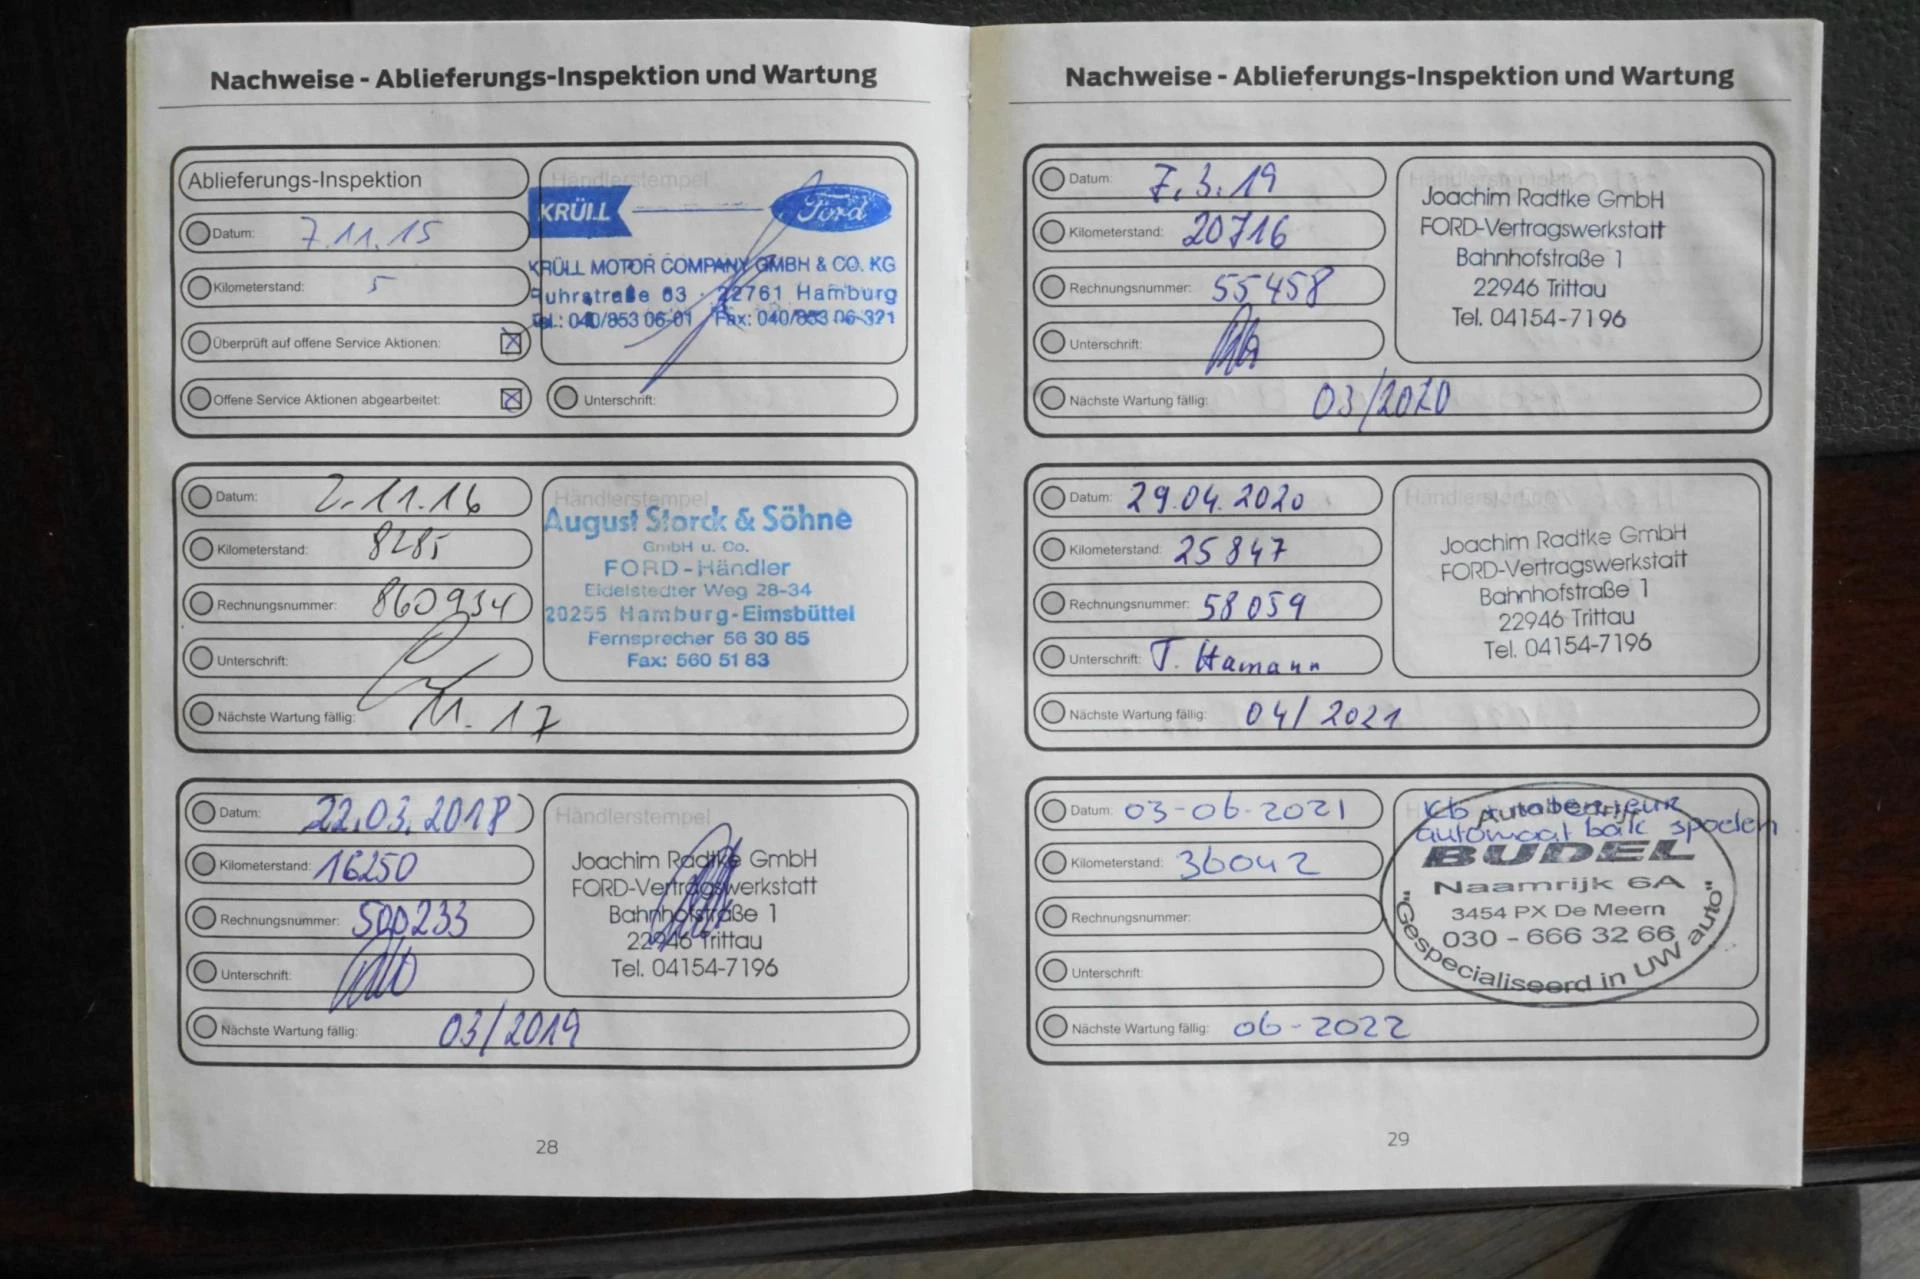 Nachweise - Ablieferungs-Inspektion und Wartung
Ablieferungs-Inspektion
Datum: 7.11.15
Kilometerstand: 5
Überprüft auf offene Service Aktionen:
Offene Service Aktionen abgearbeitet:
Händlerstempel
KRÜLL Ford
KRÜLL MOTOR COMPANY GMBH & CO. KG
Ruhrstraße 63 · 22761 Hamburg
Tel.: 040/853 06-01 Fax: 040/853 06-321
Unterschrift:
Datum: 2.11.16
Kilometerstand: 8285
Rechnungsnummer: 860934
Unterschrift:
Händlerstempel
August Storck & Söhne
GmbH u. Co.
FORD-Händler
Eidelstedter Weg 28-34
20255 Hamburg-Eimsbüttel
Fernsprecher 56 30 85
Fax: 560 51 83
Nächste Wartung fällig: 11.17
Datum: 22.03.2018
Kilometerstand: 16250
Rechnungsnummer: 500233
Unterschrift:
Händlerstempel
Joachim Radtke GmbH
FORD-Vertragswerkstatt
Bahnhofstraße 1
22946 Trittau
Tel. 04154-7196
Nächste Wartung fällig: 03/2019
28
Nachweise - Ablieferungs-Inspektion und Wartung
Datum: 7.3.19
Kilometerstand: 20716
Rechnungsnummer: 55458
Unterschrift:
Händlerstempel
Joachim Radtke GmbH
FORD-Vertragswerkstatt
Bahnhofstraße 1
22946 Trittau
Tel. 04154-7196
Nächste Wartung fällig: 03/2020
Datum: 29.04.2020
Kilometerstand: 25847
Rechnungsnummer: 58059
Unterschrift: T. Hamann
Händlerstempel
Joachim Radtke GmbH
FORD-Vertragswerkstatt
Bahnhofstraße 1
22946 Trittau
Tel. 04154-7196
Nächste Wartung fällig: 04/2021
Datum: 03-06-2021
Kilometerstand: 36042
Rechnungsnummer:
Unterschrift:
automaat bak spoelen
Autobedrijf
BUDEL
Naamrijk 6A
3454 PX De Meern
030 - 666 32 66
"Gespecialiseerd in UW auto"
Nächste Wartung fällig: 06-2022
29